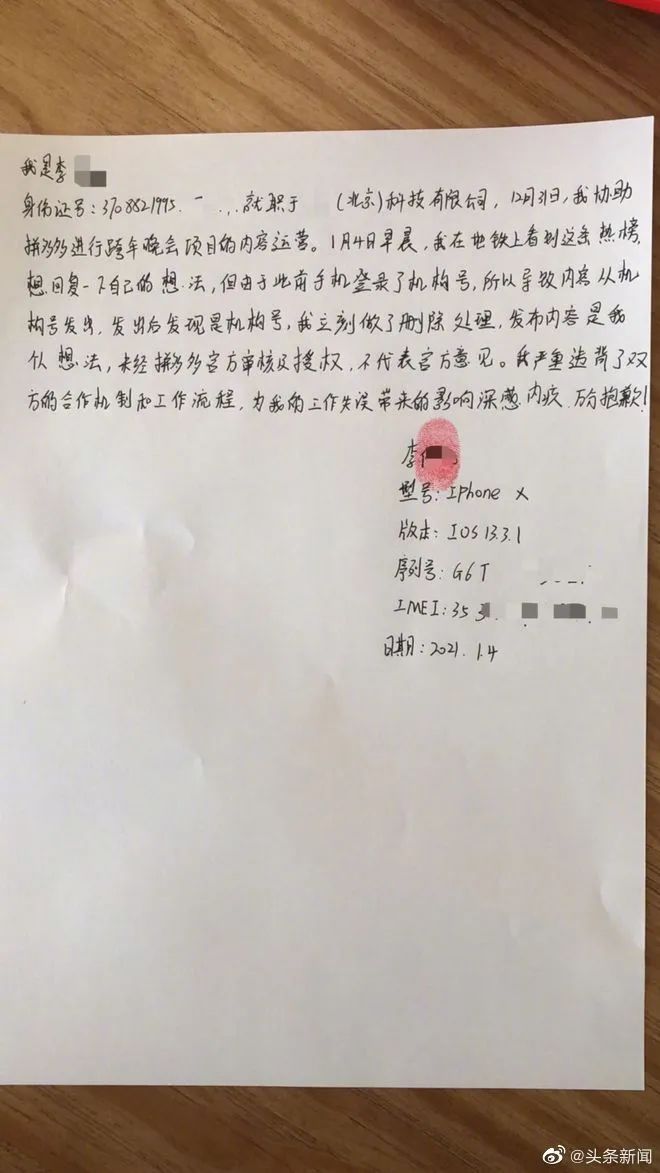 我是李
身份证号：3708821995. 就职于 （北京）科技有限公司，12月31日，我协助
拼多多进行跨年晚会项目的内容运营。1月4日早晨，我在地铁上看到这条热榜，
想回复一下自己的想法，但由于此前手机登录了机构号，所以导致内容从机
构号发出，发出后发现是机构号，我立刻做了删除处理，发布内容是我
个人想法，未经拼多多官方审核及授权，不代表官方意见。我严重违背了双
方的合作机制和工作流程，为我的工作失误带来的影响深感内疚，万分抱歉！
李
型号：IPhone X
版本：IOS 13.3.1
序列号：G6T
IMEI：353
日期：2021.1.4
@头条新闻